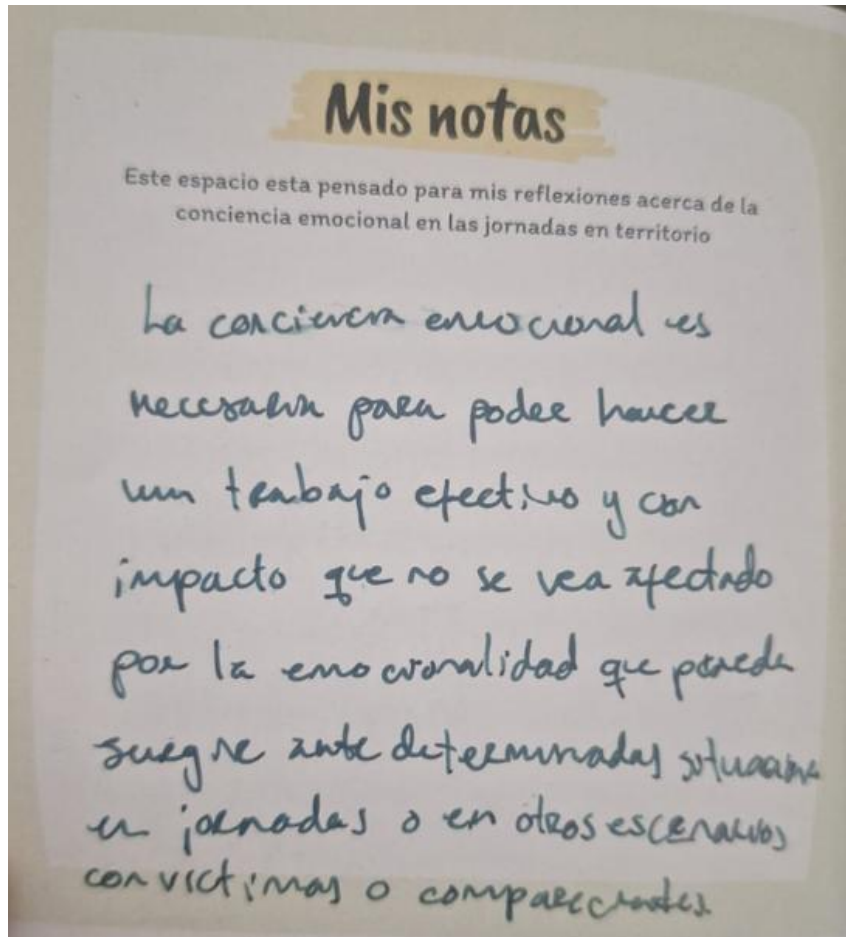 Mis notas
Este espacio esta pensado para mis reflexiones acerca de la
conciencia emocional en las jornadas en territorio
La conciencia emocional es
necesaria para poder hacer
un trabajo efectivo y con
impacto que no se vea afectado
por la emocionalidad que pueda
surgir ante determinadas situaciones
en jornadas o en otros escenarios
con victimas o comparecientes.